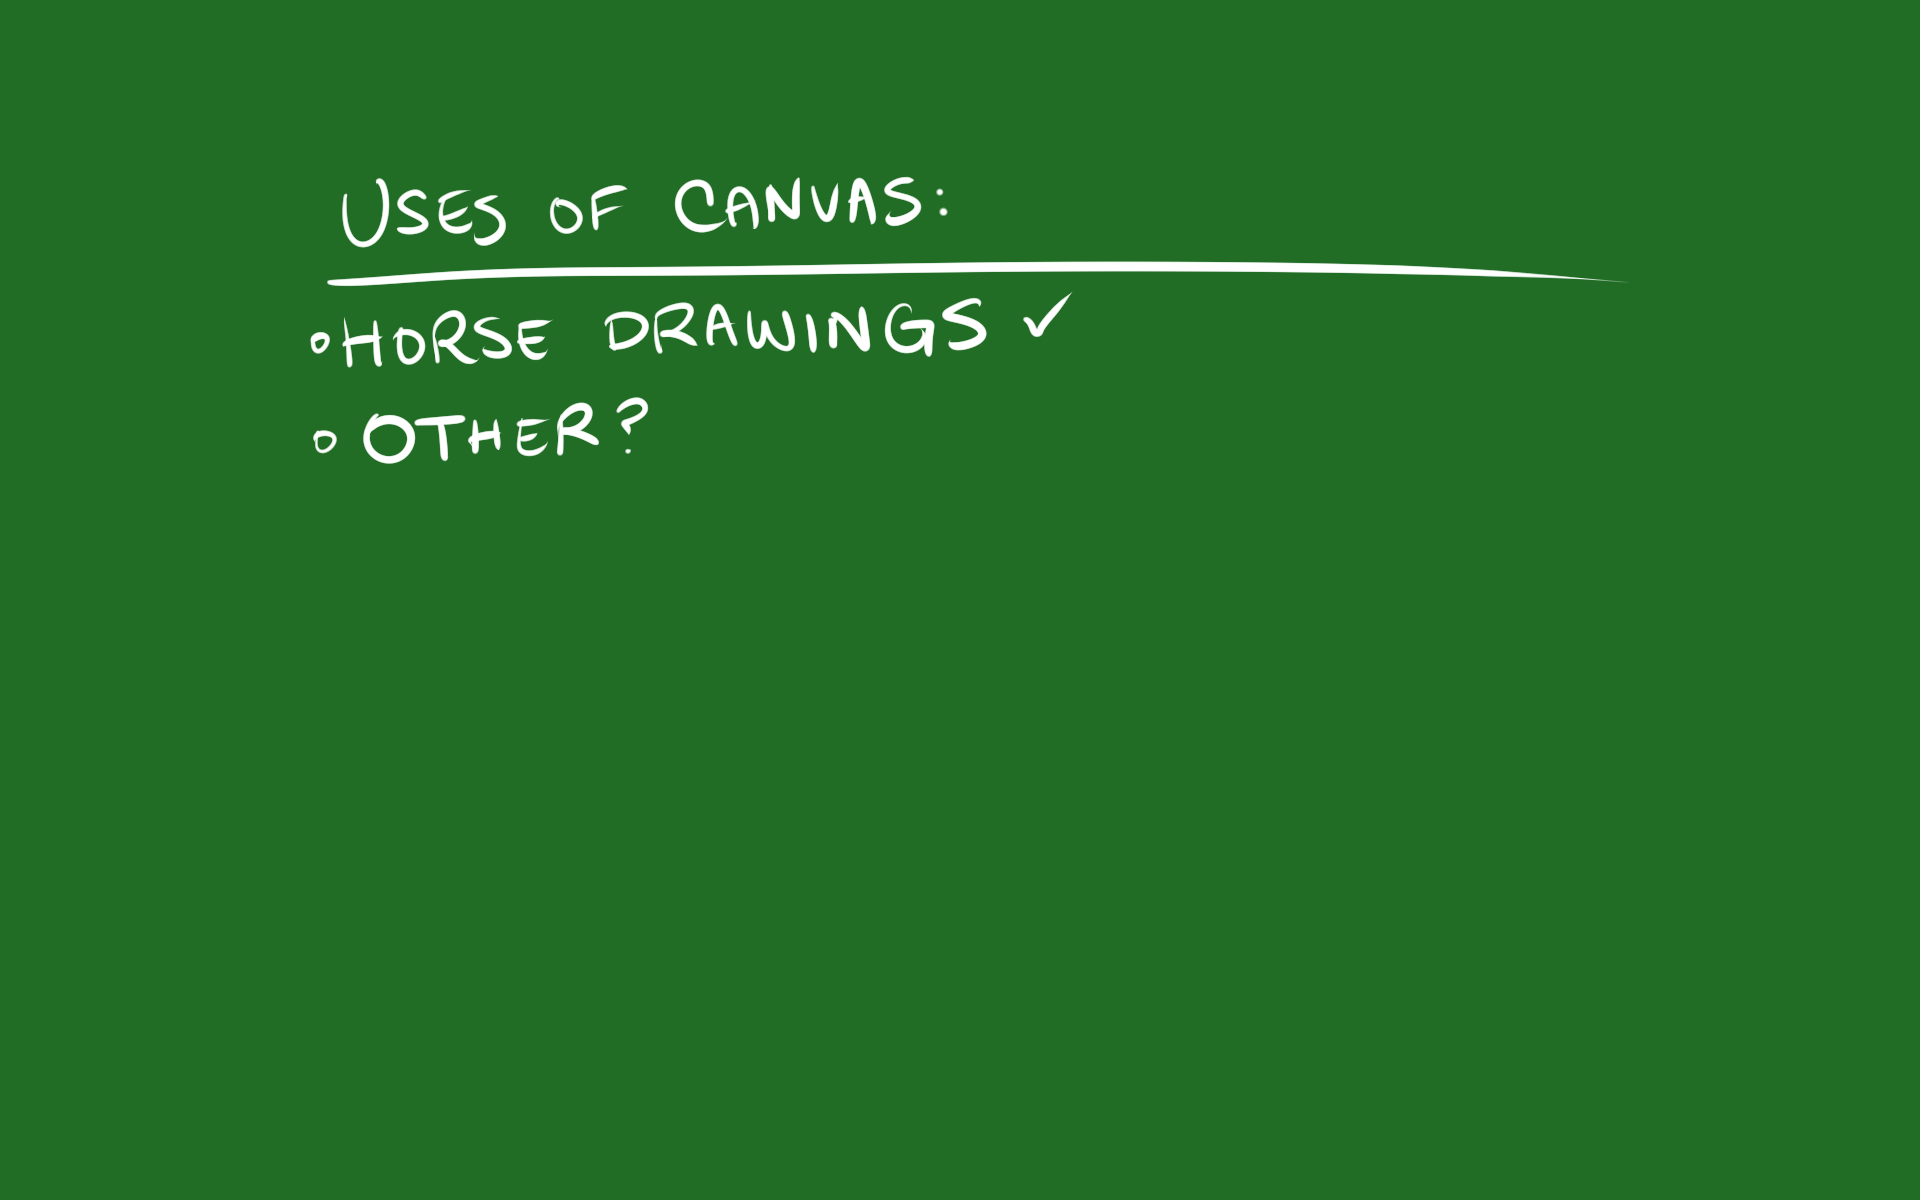 USES OF CANVAS:
• HORSE DRAWINGS ✓
• OTHER?